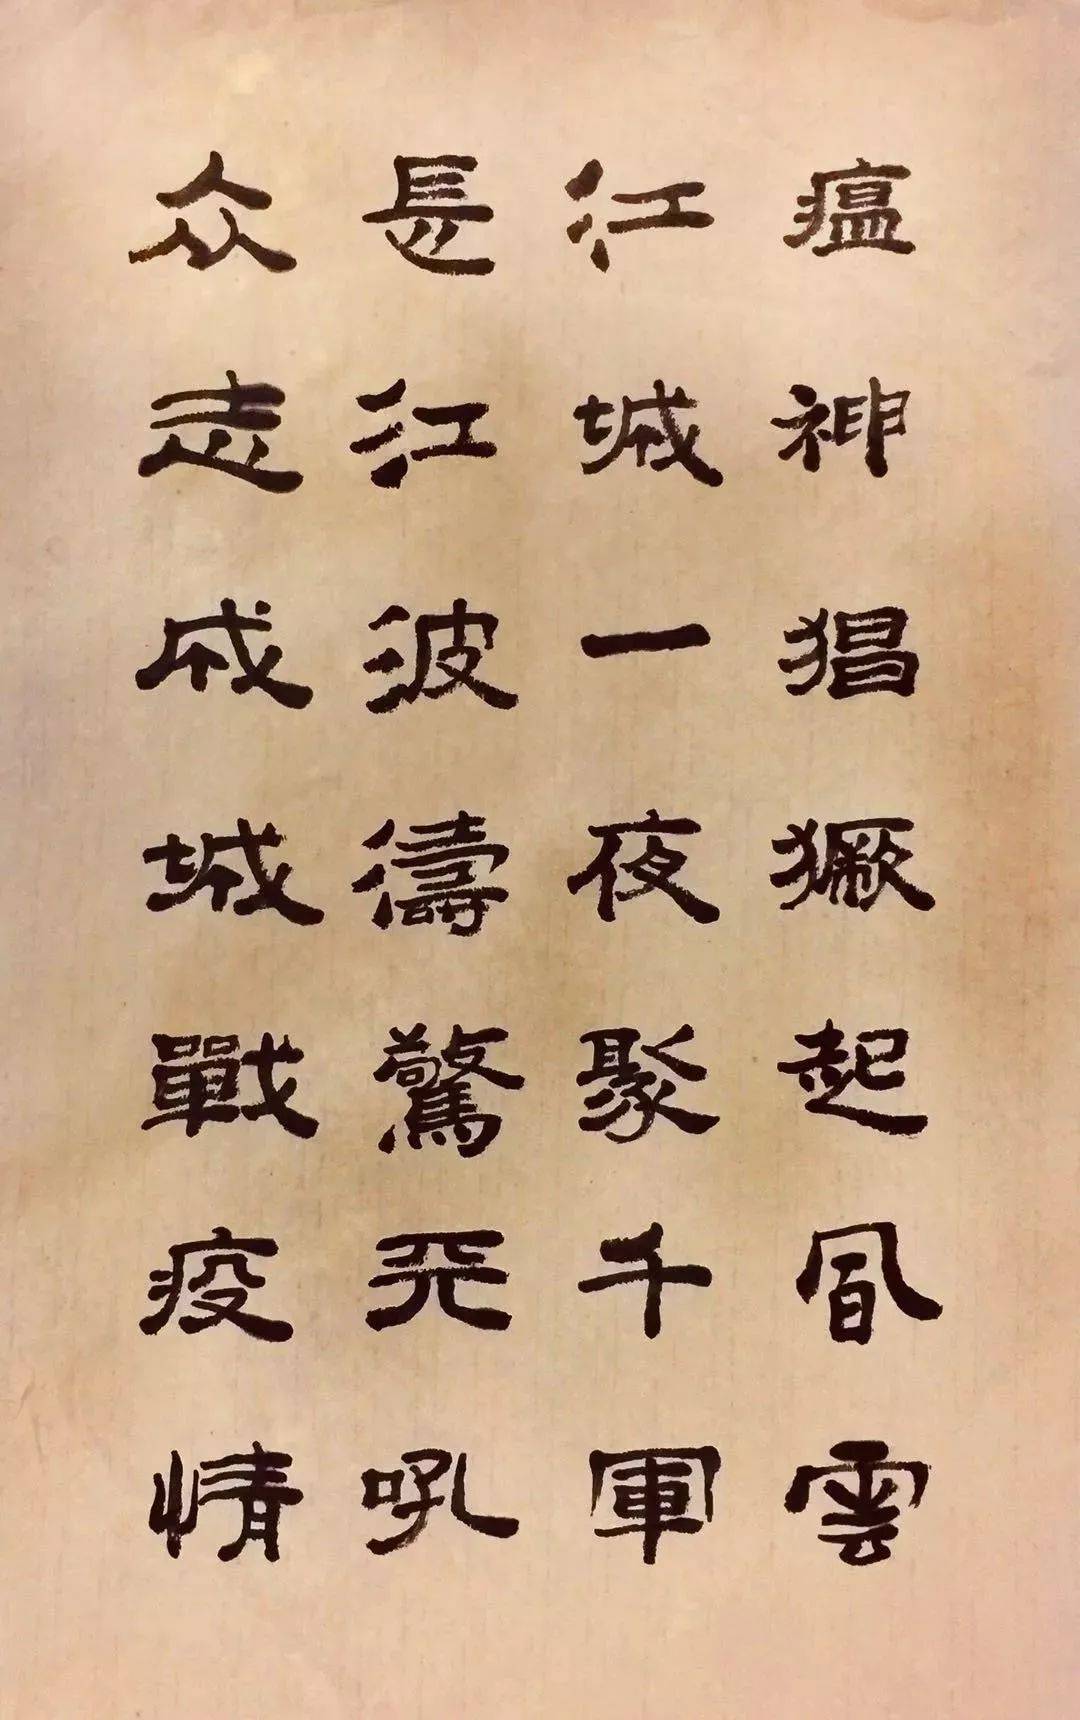 瘟神猖獗起風雲
江城一夜聚千軍
長江波濤驚天吼
众志成城戰疫情